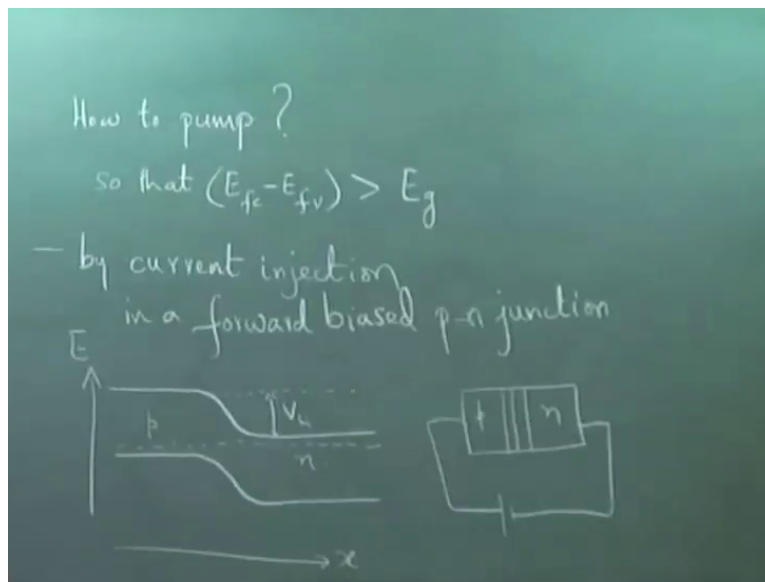 How to pump ?
so that (E_fc - E_fv) > E_g
- by current injection
in a forward biased p-n junction
E
p
V_b
n
p
n
x